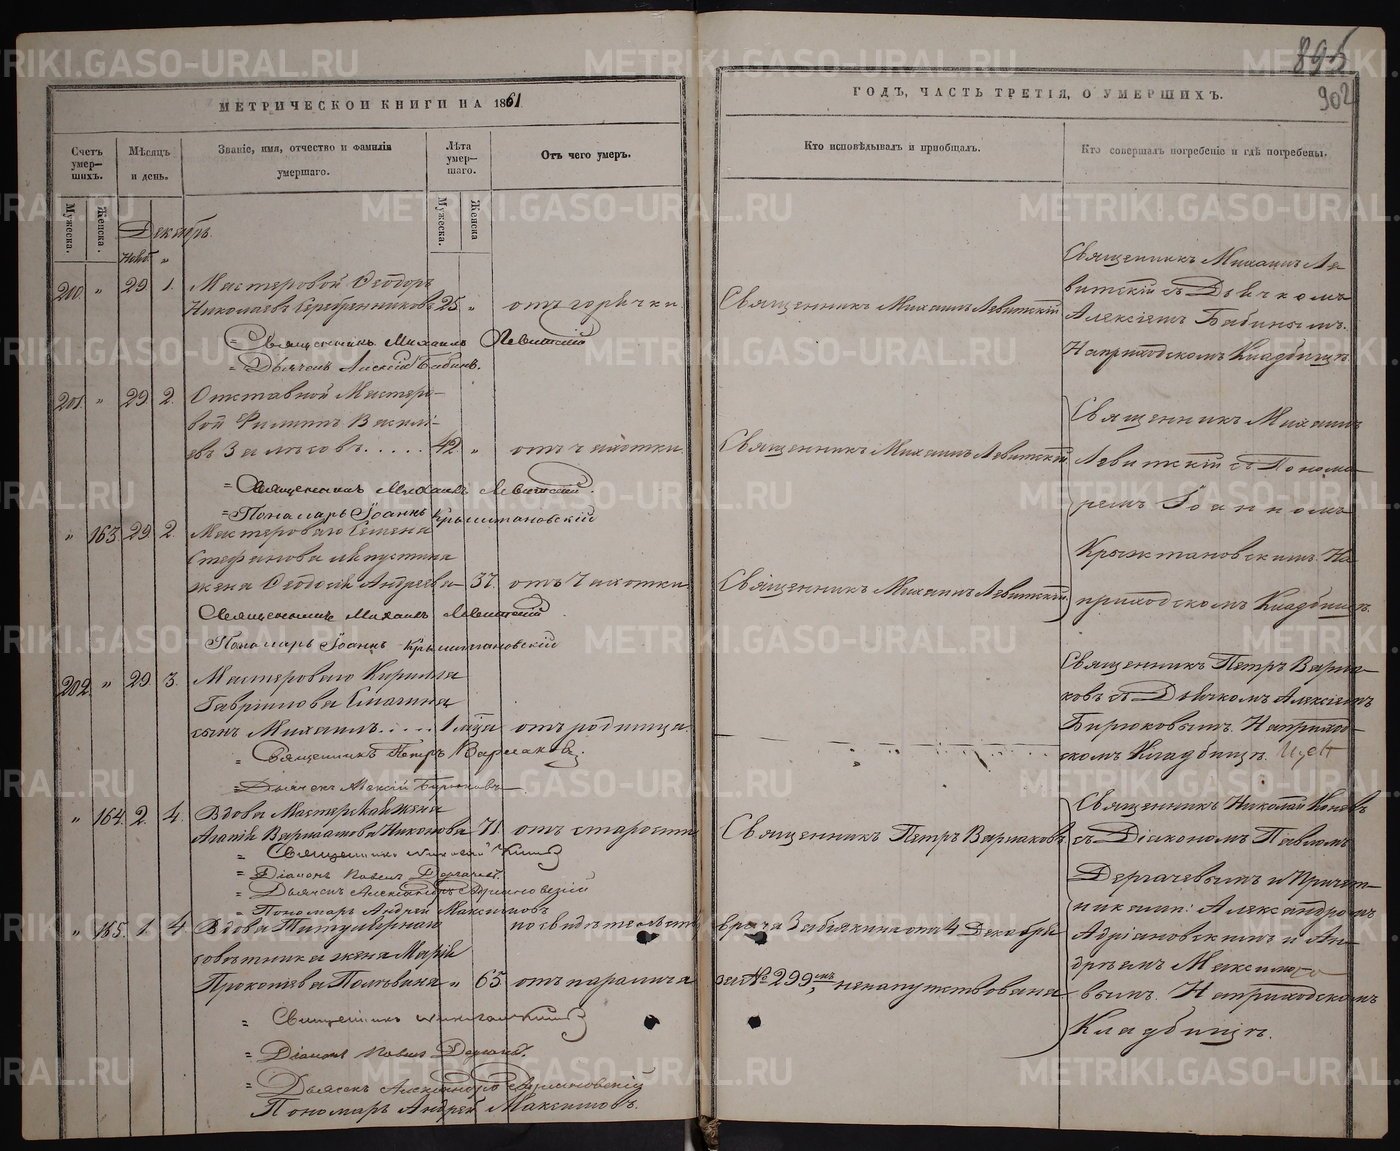 895
902
МЕТРИЧЕСКОЙ КНИГИ НА 1861
ГОДЪ, ЧАСТЬ ТРЕТІЯ, О УМЕРШИХЪ.
Счетъ умер-шихъ.
Мѣсяцъ и день.
Званіе, имя, отчество и фамилія умершаго.
Лѣта умер-шаго.
Отъ чего умеръ.
Кто исповѣдывалъ и пріобщалъ.
Кто совершалъ погребеніе и гдѣ погребены.
Мужеска.
Женска.
Мужеска.
Женска
Декабрь.
Нояб. "
200. " 29 1. Мастеровой Ѳеодоръ
Николаевъ Серебренниковъ 25 " отъ горячки
Священникъ Михаилъ Левитскій
Священникъ Михаилъ Ле-
витскій съ Дьячкомъ
Алексіемъ Бабинымъ.
На приходскомъ Кладбищѣ.
= Священникъ Михаилъ Левитскій
= Дьячекъ Алексій Бабинъ.
201. " 29 2. Отставной Мастеро-
вой Филиппъ Василь-
евъ ..... 42 " отъ чахотки
Священникъ Михаилъ Левитскій
= Священникъ Михаилъ Левитскій.
= Пономарь Іоаннъ Крыжтановскій
" 163 29 2. Мастероваго Семена
Стефанова
жена Ѳеодосія Андреева 37. отъ Чахотки
Священникъ Михаилъ Левитскій
Священникъ Михаилъ
Левитскій съ Понома-
ремъ Іоанномъ
Крыжтановскимъ. На
приходскомъ Кладбищѣ.
Священникъ Михаилъ Левитскій.
Пономарь Іоаннъ Крыжтановскій
202. " 29 3. Мастероваго Кирилла
Гаврилова
сынъ Михаилъ.... 1 мца отъ родимца.
Священникъ Петръ Варла-
ковъ съ Дьячкомъ Алексіемъ
Бирюковымъ. На приход-
скомъ Кладбищѣ.
= Священникъ Петръ Варлаковъ.
= Дьячекъ Алексій Бирюковъ
" 164. 2. 4. Вдова Мастерская жена
Никонова 71 отъ старости
Священникъ Петръ Варлаковъ.
= Священникъ Николай
= Діаконъ Павелъ Дергачевъ.
= Дьячекъ Александръ Адріановскій
= Пономарь Андрей Максимовъ
" 165. 1. 4 Вдова Титулярнаго по свидѣтельству
врача Забѣлкина отъ 4 Декабря
совѣтника жена Марія
Прокопьева " 65 отъ паралича
за № 299мъ, ненапутствована
Священникъ Николай
съ Діакономъ Павломъ
Дергачевымъ и Причет-
никами: Александромъ
Адріановскимъ и Ан-
дреемъ Максимо-
вымъ. На приходскомъ
Кладбищѣ.
= Священникъ Николай
= Діаконъ Павелъ Дергачевъ.
= Дьячекъ Александръ Адріановскій
Пономарь Андрей Максимовъ.
METRIKI.GASO-URAL.RU